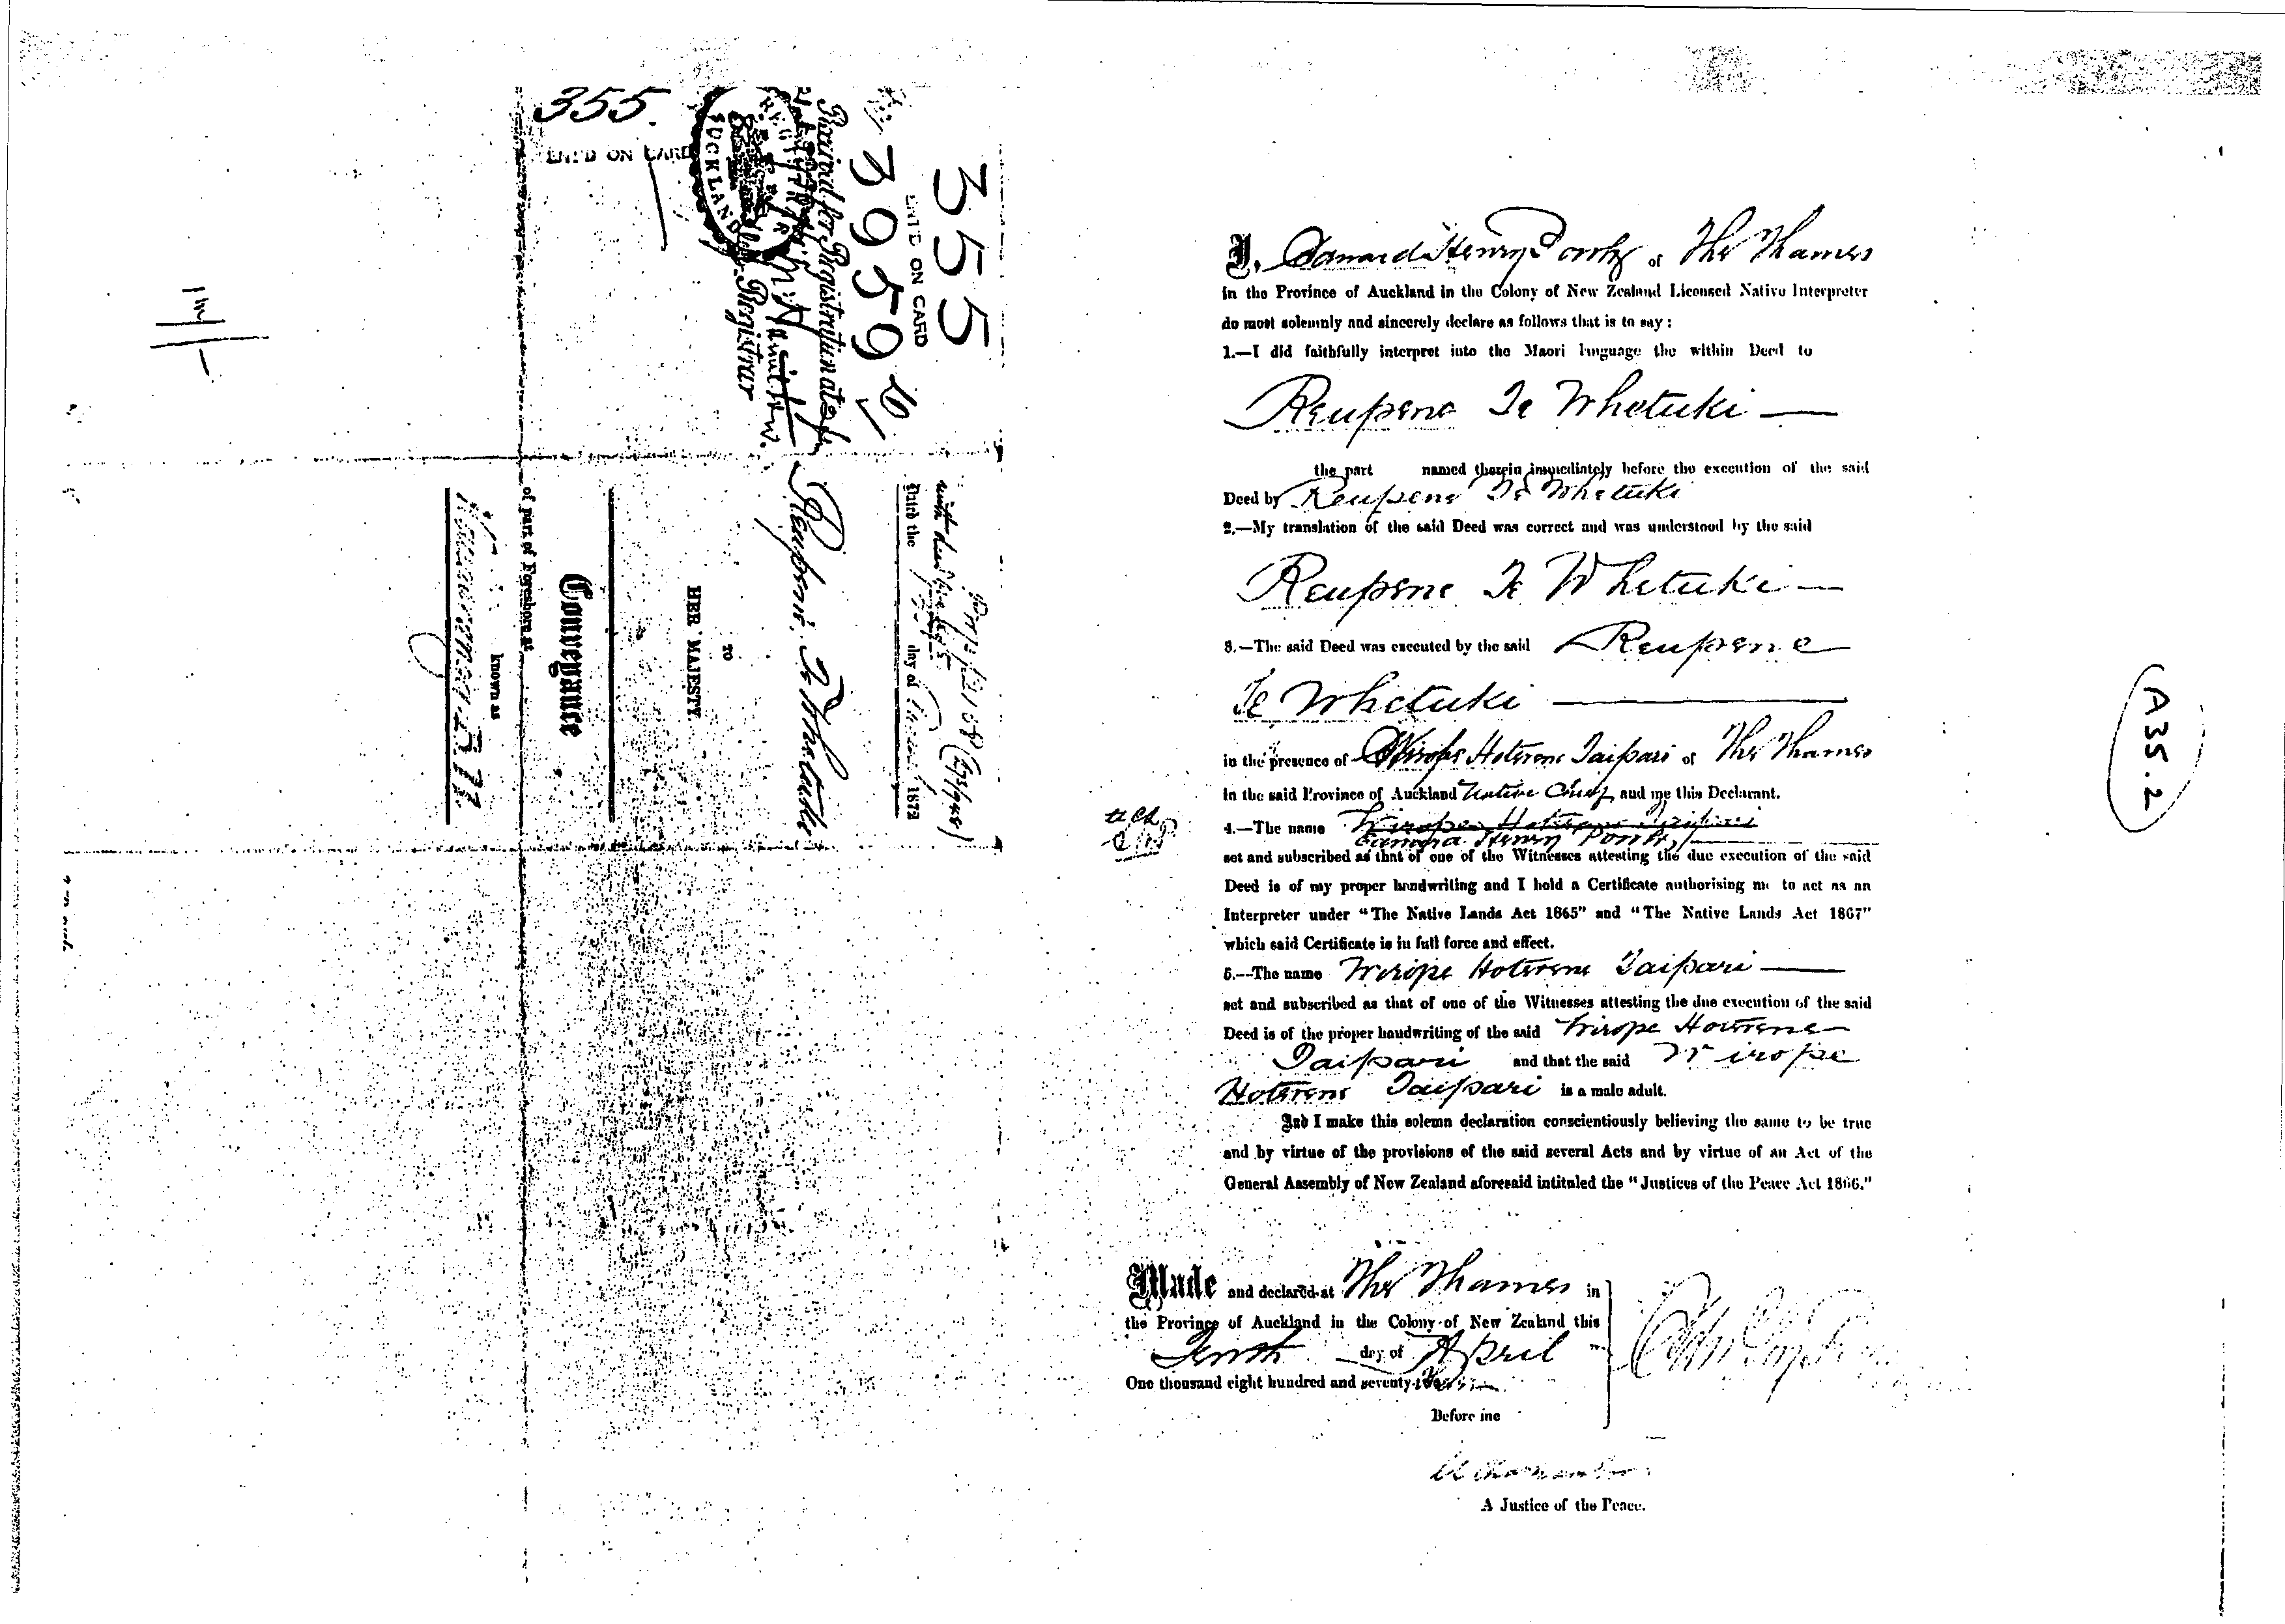 355.
ENT'D ON CARD
355
ENT'D ON CARD
39596
Received for Registration at
Registrar
AUCKLAND
dated the day of 1872
Reupene Te Whetuki
TO
HER MAJESTY.
Conveyance
of part of Foreshore at
known as
I, Edward Henry of The Thames
in the Province of Auckland in the Colony of New Zealand Licensed Native Interpreter
do most solemnly and sincerely declare as follows that is to say:
1.—I did faithfully interpret into the Maori language the within Deed to
Reupene Te Whetuki —
the part named therein immediately before the execution of the said
Deed by Reupene Te Whetuki
2.—My translation of the said Deed was correct and was understood by the said
Reupene Te Whetuki —
3.—The said Deed was executed by the said Reupene
Te Whetuki —
in the presence of Wirope Hoterene Taipari of The Thames
in the said Province of Auckland Native Chief and me this Declarant.
4.—The name Wirope Hoterene Taipari
Henry
set and subscribed as that of one of the Witnesses attesting the due execution of the said
Deed is of my proper handwriting and I hold a Certificate authorising me to act as an
Interpreter under "The Native Lands Act 1865" and "The Native Lands Act 1867"
which said Certificate is in full force and effect.
5.—The name Wirope Hoterene Taipari —
set and subscribed as that of one of the Witnesses attesting the due execution of the said
Deed is of the proper handwriting of the said Wirope Hoterene
Taipari and that the said Wirope
Hoterene Taipari is a male adult.
And I make this solemn declaration conscientiously believing the same to be true
and by virtue of the provisions of the said several Acts and by virtue of an Act of the
General Assembly of New Zealand aforesaid intituled the "Justices of the Peace Act 1866."
Made and declared at The Thames in
the Province of Auckland in the Colony of New Zealand this
Tenth day of April
One thousand eight hundred and seventy
Before me
A Justice of the Peace.
A35.2